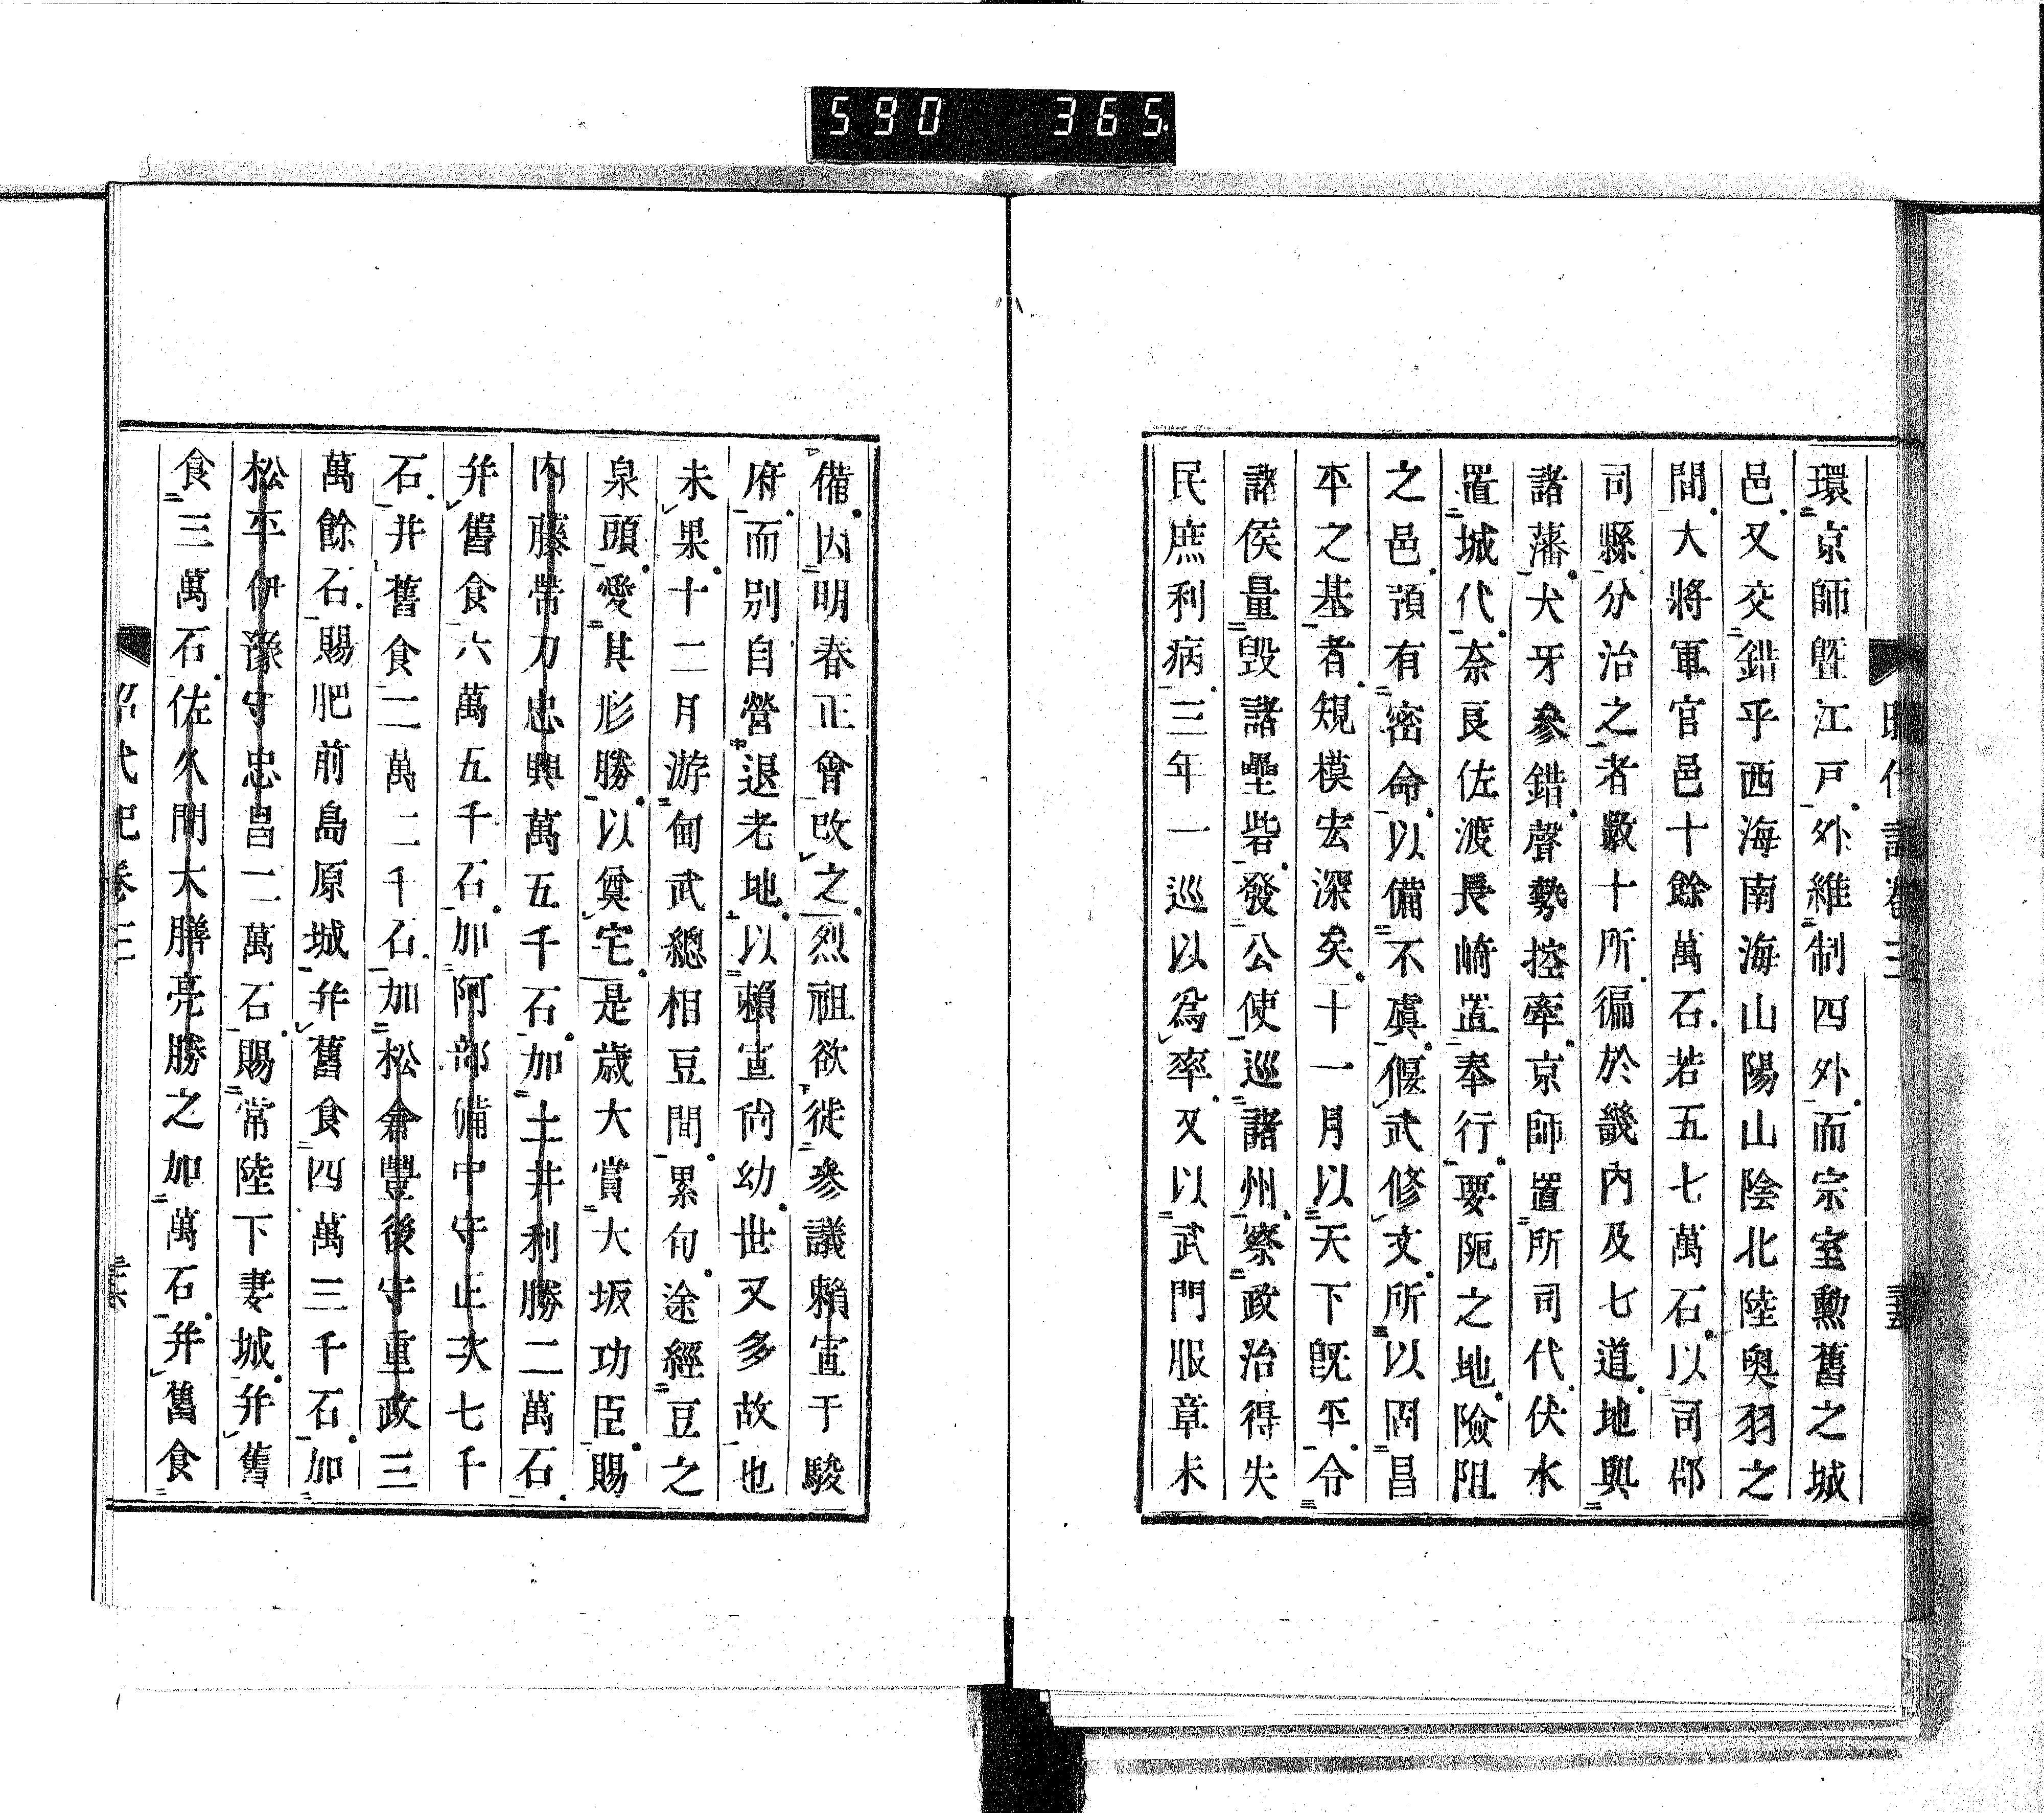 590 365
環京師曁江戸外維制四外而宗室勲舊之城
邑又交錯乎西海南海山陽山陰北陸奥羽之
間大將軍官邑十餘萬石若五七萬石以司郡
司縣分治之者數十所徧於畿內及七道地與
諸藩犬牙參錯聲勢控牽京師置所司代伏水
置城代奈良佐渡長崎置奉行要阨之地險阻
之邑預有密命以備不虞偃武修文所以罔昌
平之基者規模宏深矣十一月以天下既平令
諸侯量毀諸壘砦發公使巡諸州察政治得失
民庶利病三年一巡以爲率又以武門服章未
備因明春正會改之烈祖欲徙參議賴宣于駿
府而別自營退老地以賴宣尙幼世又多故也
未果十二月游甸武總相豆間累旬途經豆之
泉頭愛其形勝以奠宅是歳大賞大坂功臣賜
内藤帶刀忠興萬五千石加土井利勝二萬石
幷舊食六萬五千石加阿部備中守正次七千
石幷舊食二萬二千石加松倉豐後守重政三
萬餘石賜肥前島原城幷舊食四萬三千石加
松平伊豫守忠昌二萬石賜常陸下妻城幷舊
食三萬石佐久間大膳亮勝之加萬石幷舊食